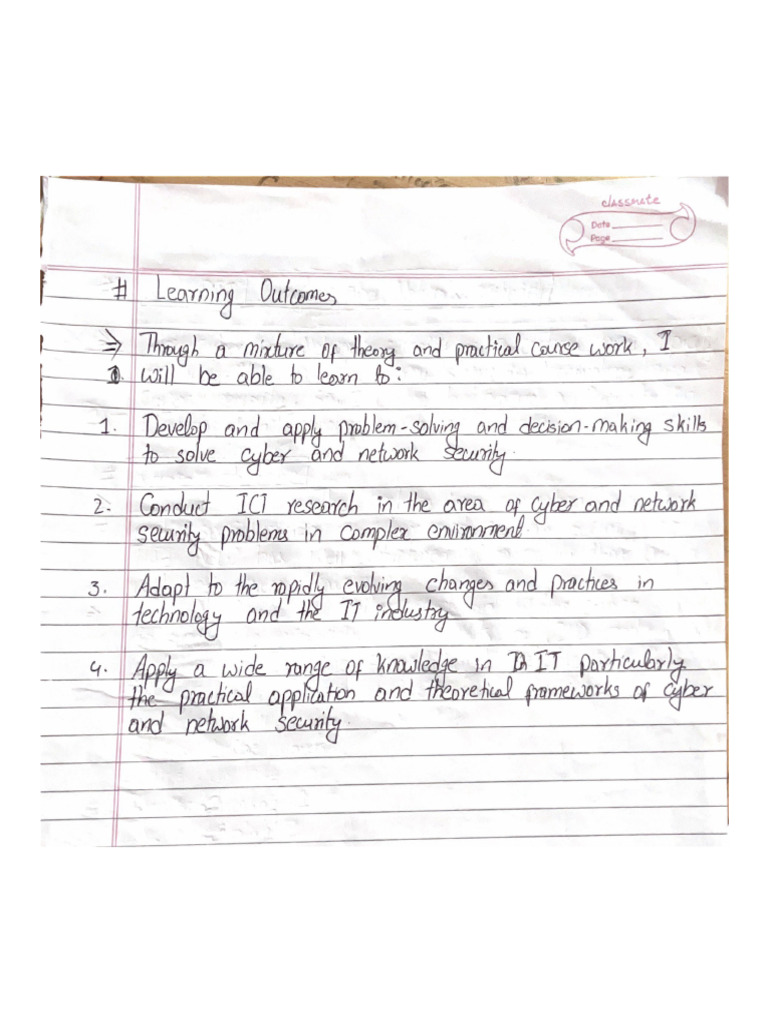 classmate
Date
Page
# Learning Outcomes
⇒ Through a mixture of theory and practical course work, I
will be able to learn to:
1. Develop and apply problem-solving and decision-making skills
to solve cyber and network security.
2. Conduct ICT research in the area of cyber and network
security problems in complex environment.
3. Adapt to the rapidly evolving changes and practices in
technology and the IT industry
4. Apply a wide range of knowledge in IT particularly
the practical application and theoretical frameworks of cyber
and network security.